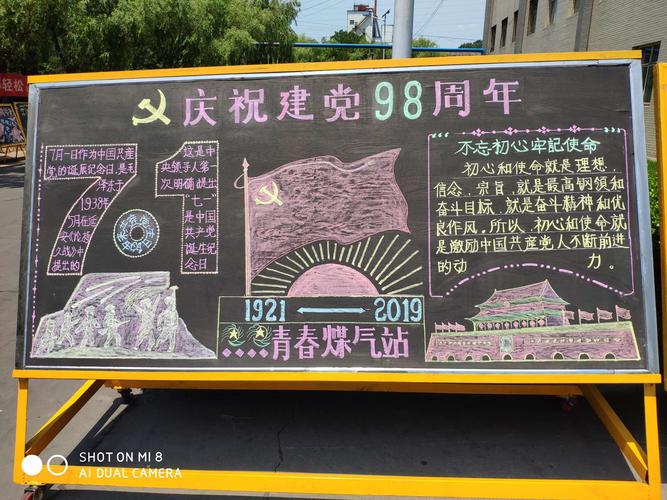 庆祝建党98周年
7月一日作为中国共産
党的诞辰纪念日,是毛
泽东于
1938年
5月在延
安《论持
久战》中
提出的
这是中
央领导人第一
次明确提出
"七一"
是中国
共产党
诞生纪
念日
1921 2019
青春煤气站
不忘初心牢記使命
初心和使命就是理想,
信念,宗旨,就是最高钢领和
奋斗目标,就是奋斗精神和优
良作风。所以,初心和使命就
是激励中国共産党人不断前进
的动 力。
SHOT ON MI 8
AI DUAL CAMERA